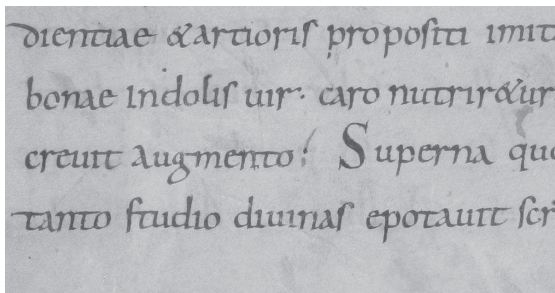 dientiae & artioris propositi imit
bonae indolis uir· caro nutrir&ur
creuit augmento: Superna quo
tanto studio diuinas epotauit scr